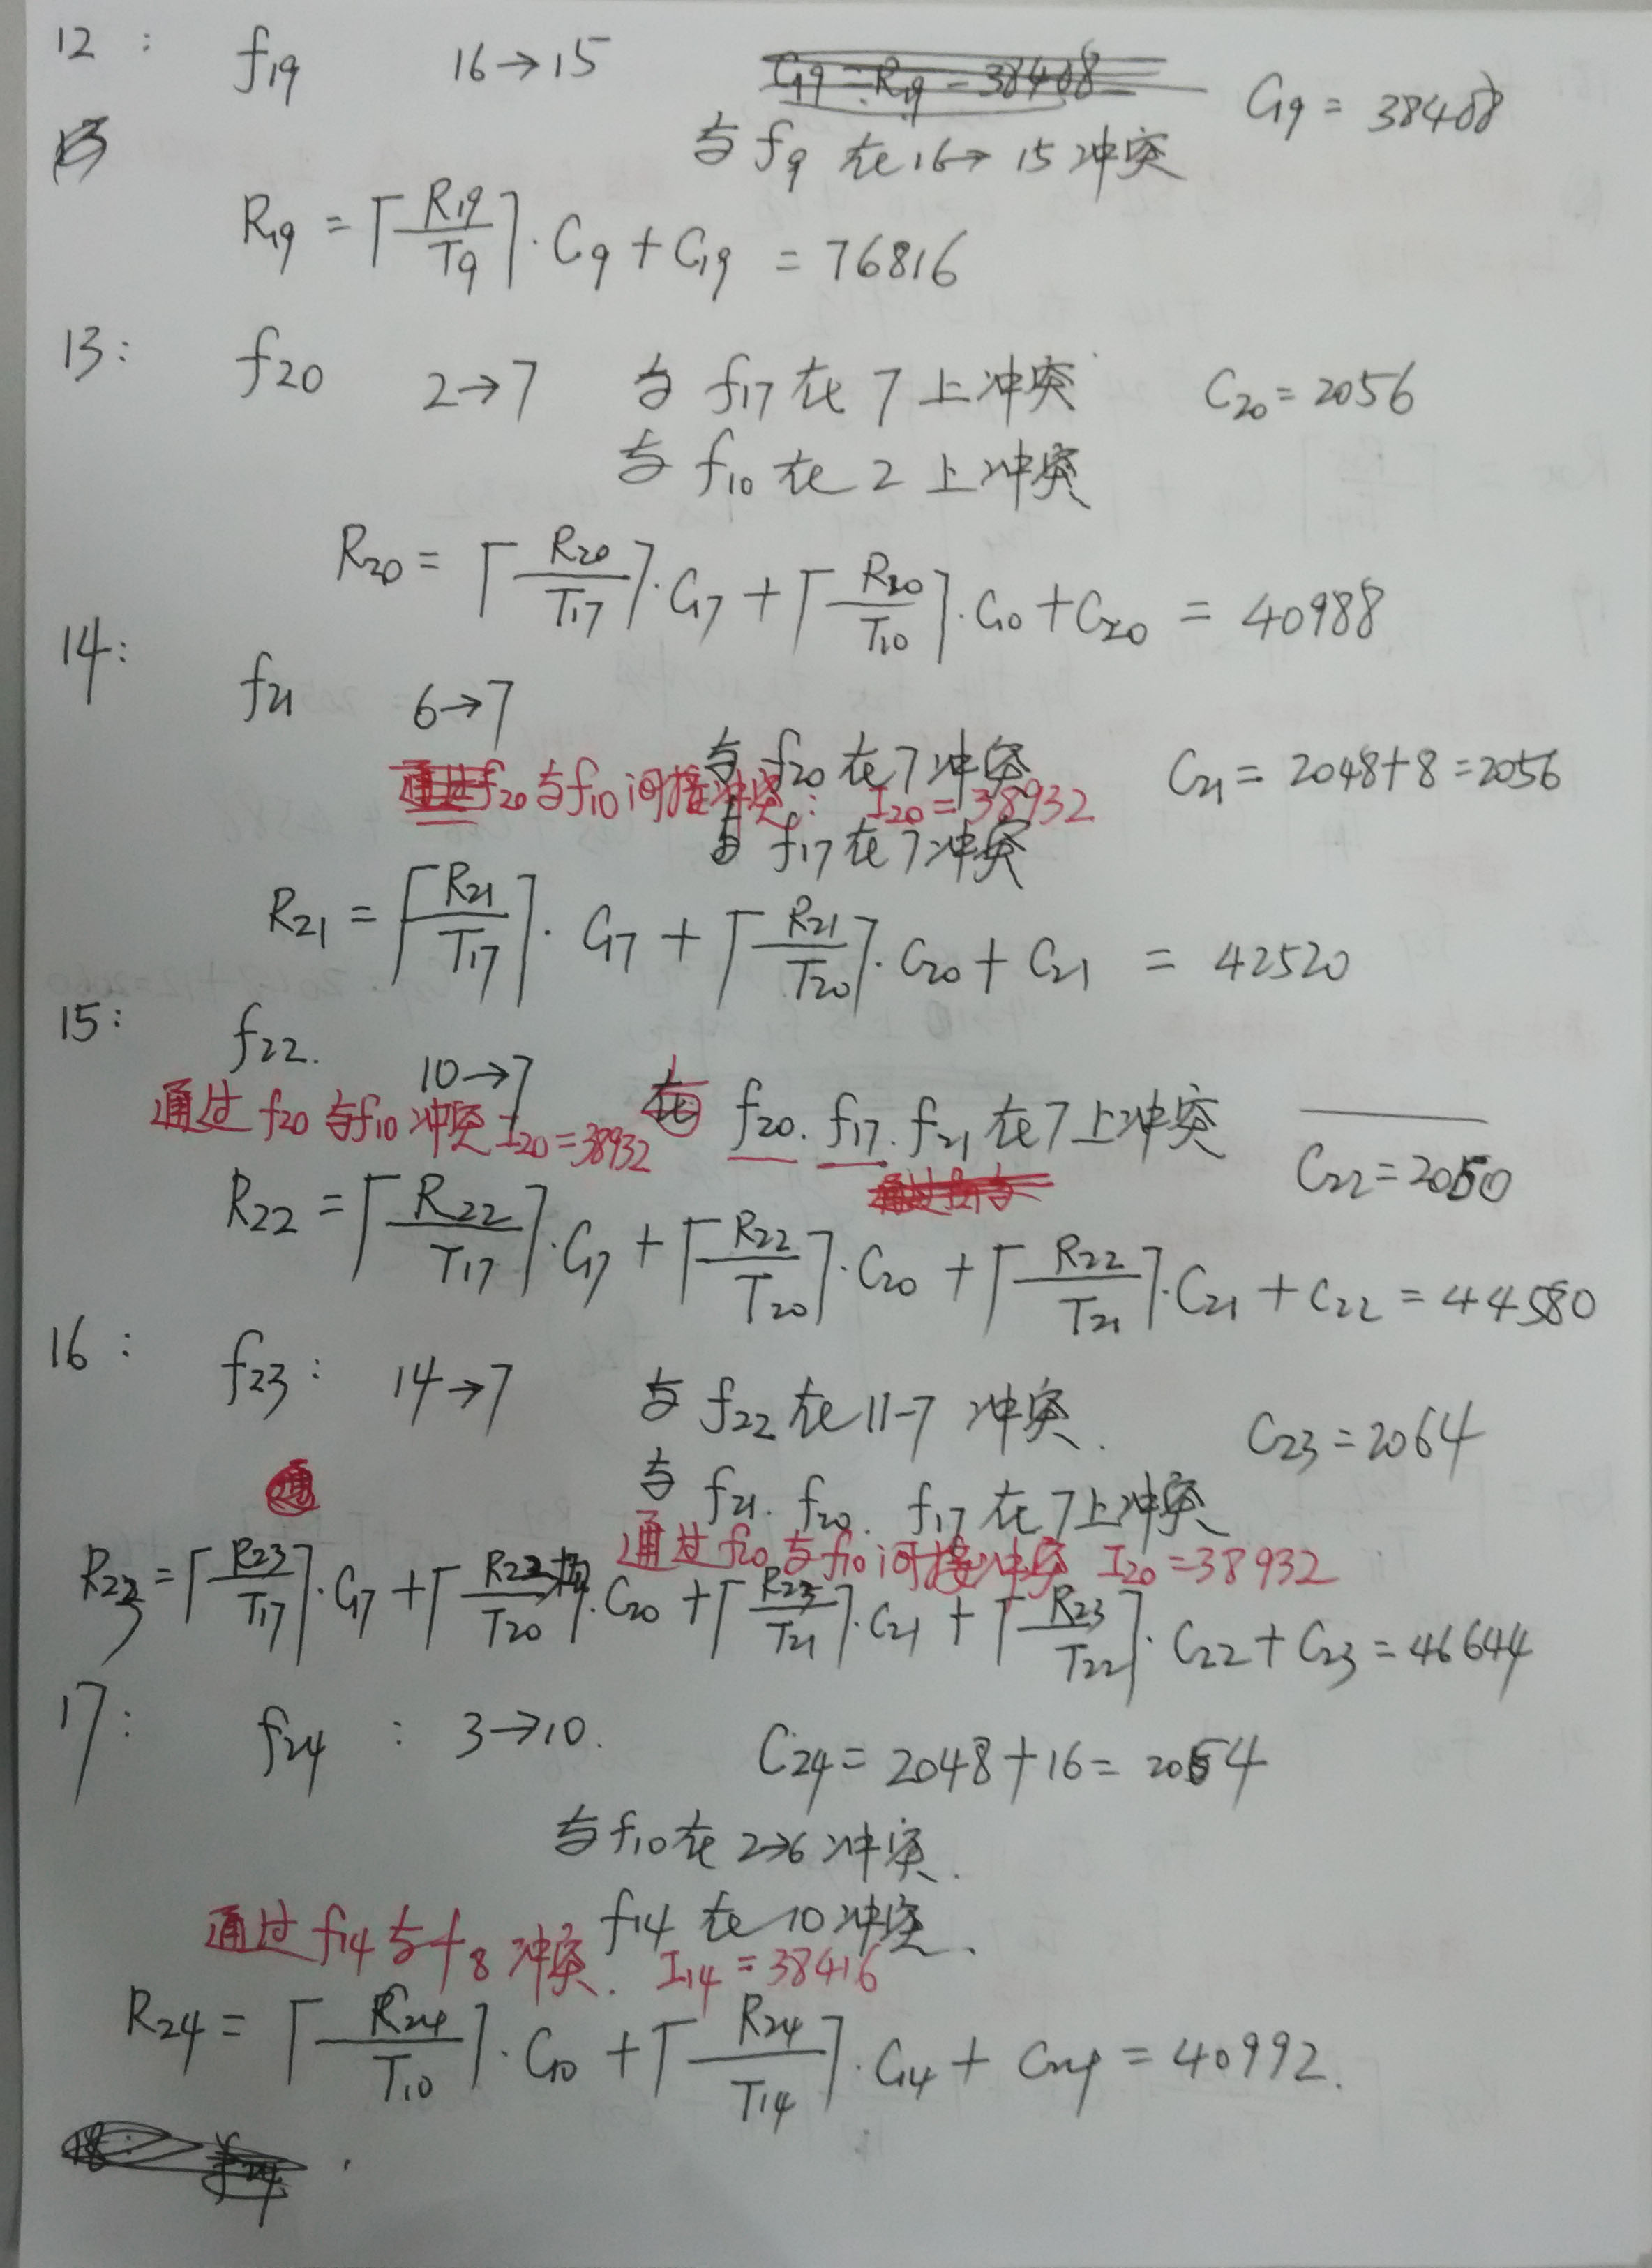 12: f19 16→15 C19 = 38408
与f9在16→15冲突
R19 = ⌈R19/T9⌉·C9 + C19 = 76816
13: f20 2→7 与f17在7上冲突 C20 = 2056
与f10在2上冲突
R20 = ⌈R20/T17⌉·C17 + ⌈R20/T10⌉·C10 + C20 = 40988
14: f21 6→7 与f20在7冲突 C21 = 2048+8 = 2056
f20与f10间接冲突: I20 = 38932
与f17在7冲突
R21 = ⌈R21/T17⌉·C17 + ⌈R21/T20⌉·C20 + C21 = 42520
15: f22. 10→7 f20. f17. f21在7上冲突
通过f20与f10冲突 I20 = 38932
C22 = 2060
R22 = ⌈R22/T17⌉·C17 + ⌈R22/T20⌉·C20 + ⌈R22/T21⌉·C21 + C22 = 44580
16: f23: 14→7 与f22在11-7冲突. C23 = 2064
与f21. f20. f17在7上冲突
通过f20与f10间接冲突 I20 = 38932
R23 = ⌈R23/T17⌉·C17 + ⌈R23/T20⌉·C20 + ⌈R23/T21⌉·C21 + ⌈R23/T22⌉·C22 + C23 = 46644
17: f24: 3→10. C24 = 2048+16 = 2064
与f10在2→6冲突.
f14在10冲突.
通过f14与f8冲突. I14 = 38416
R24 = ⌈R24/T10⌉·C10 + ⌈R24/T14⌉·C14 + C24 = 40992.